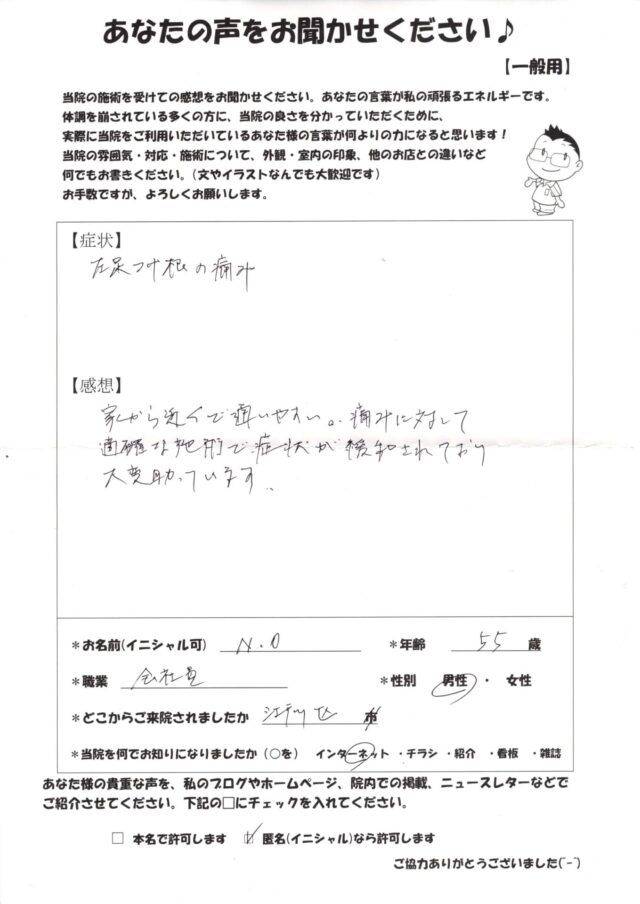 あなたの声をお聞かせください♪
【一般用】
当院の施術を受けての感想をお聞かせください。あなたの言葉が私の頑張るエネルギーです。
体調を崩されている多くの方に、当院の良さを分かっていただくために、
実際に当院をご利用いただいているあなた様の言葉が何よりの力になると思います！
当院の雰囲気・対応・施術について、外観・室内の印象、他のお店との違いなど
何でもお書きください。（文やイラストなんでも大歓迎です）
お手数ですが、よろしくお願いします。
【症状】
左足つけ根の痛み
【感想】
家から近くで通いやすい。痛みに対して
適確な施術で症状が緩和されており
大変助っています。
＊お名前（イニシャル可） N.O ＊年齢 55 歳
＊職業 会社員 ＊性別 男性 ・ 女性
＊どこからご来院されましたか 区 市
＊当院を何でお知りになりましたか（○を） インターネット ・チラシ ・紹介 ・看板 ・雑誌
あなた様の貴重な声を、私のブログやホームページ、院内での掲載、ニュースレターなどで
ご紹介させてください。下記の□にチェックを入れてください。
□ 本名で許可します ☑ 匿名（イニシャル）なら許可します
ご協力ありがとうございました(^-^)